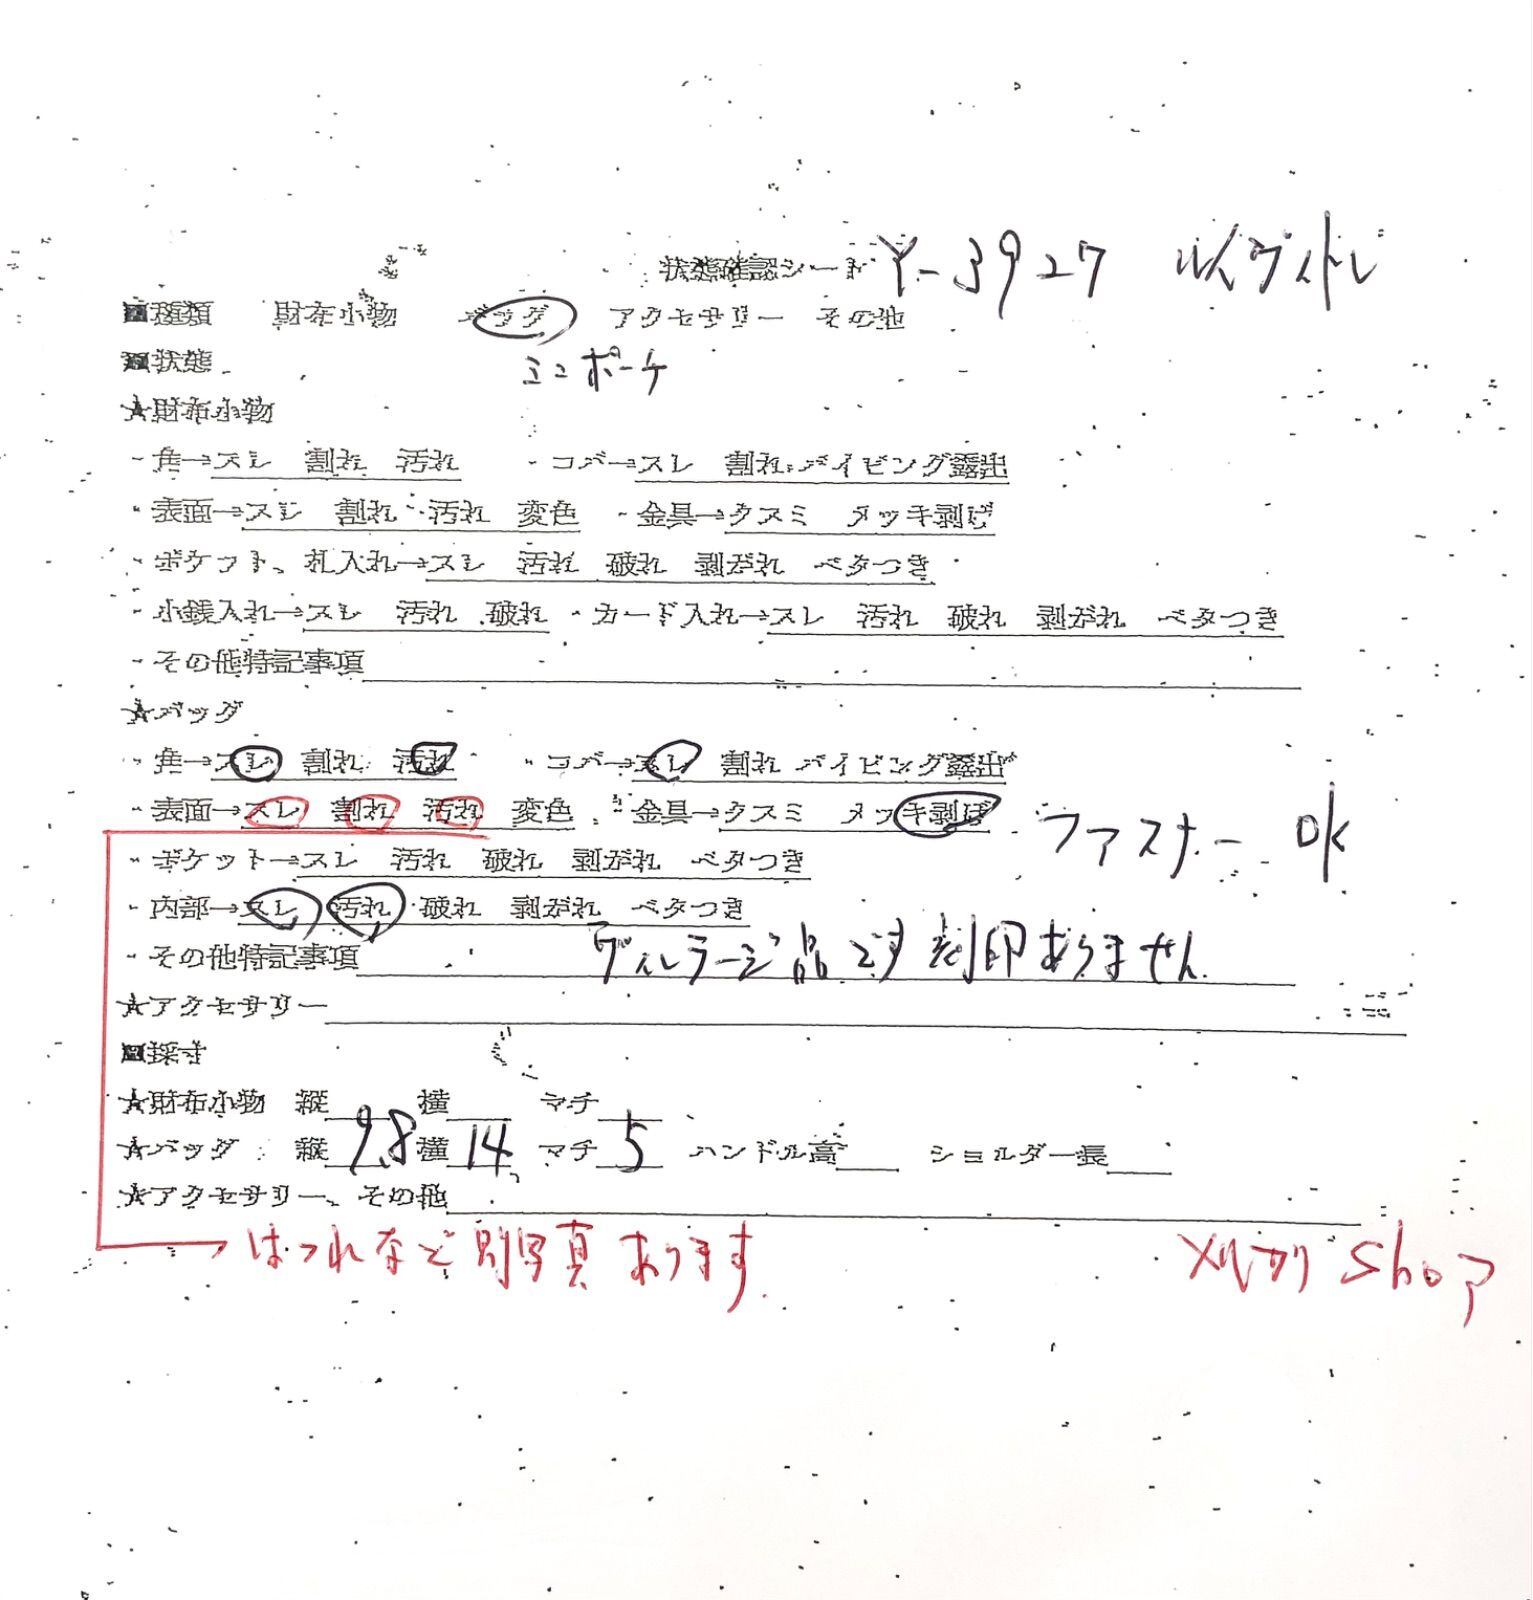 状態確認シート Y-3927 ルイヴィトン
■種類 財布小物 バッグ アクセサリー その他
■状態 ミニポーチ
★財布小物
・角→スレ 割れ 汚れ ・コバ→スレ 割れ パイピング露出
・表面→スレ 割れ 汚れ 変色 ・金具→クスミ メッキ剥げ
・ポケット、札入れ→スレ 汚れ 破れ 剥がれ ベタつき
・小銭入れ→スレ 汚れ 破れ ・カード入れ→スレ 汚れ 破れ 剥がれ ベタつき
・その他特記事項
★バッグ
・角→スレ 割れ 汚れ ・コバ→スレ 割れ パイピング露出
・表面→スレ 割れ 汚れ 変色 ・金具→クスミ メッキ剥げ ファスナー OK
・ポケット→スレ 汚れ 破れ 剥がれ ベタつき
・内部→スレ 汚れ 破れ 剥がれ ベタつき
・その他特記事項 ヴィンテージ品です 刻印ありません
★アクセサリー
■採寸
★財布小物 縦 横 マチ
★バッグ 縦 9.8 横 14 マチ 5 ハンドル高 ショルダー長
★アクセサリー、その他
→ほつれなど別写真あります メルカリShop